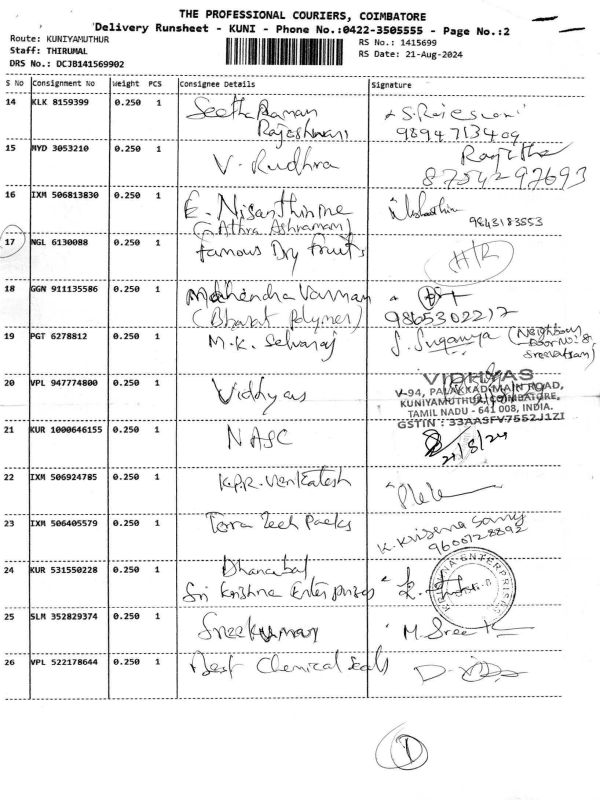 THE PROFESSIONAL COURIERS, COIMBATORE
Delivery Runsheet - KUNI - Phone No.:0422-3505555 - Page No.:2
Route: KUNIYAMUTHUR
RS No.: 1415699
Staff: THIRUMAL
RS Date: 21-Aug-2024
DRS No.: DCJB141569902
S No Consignment No Weight PCS Consignee Details Signature
14 KLK 8159399 0.250 1 Seetha Raman
Rajeshwari
9894713409
15 MYD 3053210 0.250 1 V. Rudhra
8754297693
16 IXM 506813830 0.250 1 E. Nisanthinine
(Athra Ashramam)
9843183553
17 NGL 6130088 0.250 1 Famous Dry Fruits
H/R
18 GGN 911135586 0.250 1 Mahendra Varman
(Bharat Polymer)
9865302217
19 PGT 6278812 0.250 1 M.K. Selvaraj S. Suganya (Neighbour
Door No: 8,
20 VPL 947774800 0.250 1 Viddyas
VIDHYAS
V-94, PALAKKAD MAIN ROAD,
KUNIYAMUTHUR, COIMBATORE,
TAMIL NADU - 641 008, INDIA.
GSTIN : 33AASFV7552J1ZI
21 KUR 1000646155 0.250 1 NASC
21/8/24
22 IXM 506924785 0.250 1 K.P.R. Venkatesh
23 IXM 506405579 0.250 1 Terra Tech Packs
K. Krisena Samy
9600128892
24 KUR 531550228 0.250 1 Dhanabal
Sri Krishna Enterprises
25 SLM 352829374 0.250 1 Sreekumar M. Sree
26 VPL 522178644 0.250 1 Best Chemical Seals
1